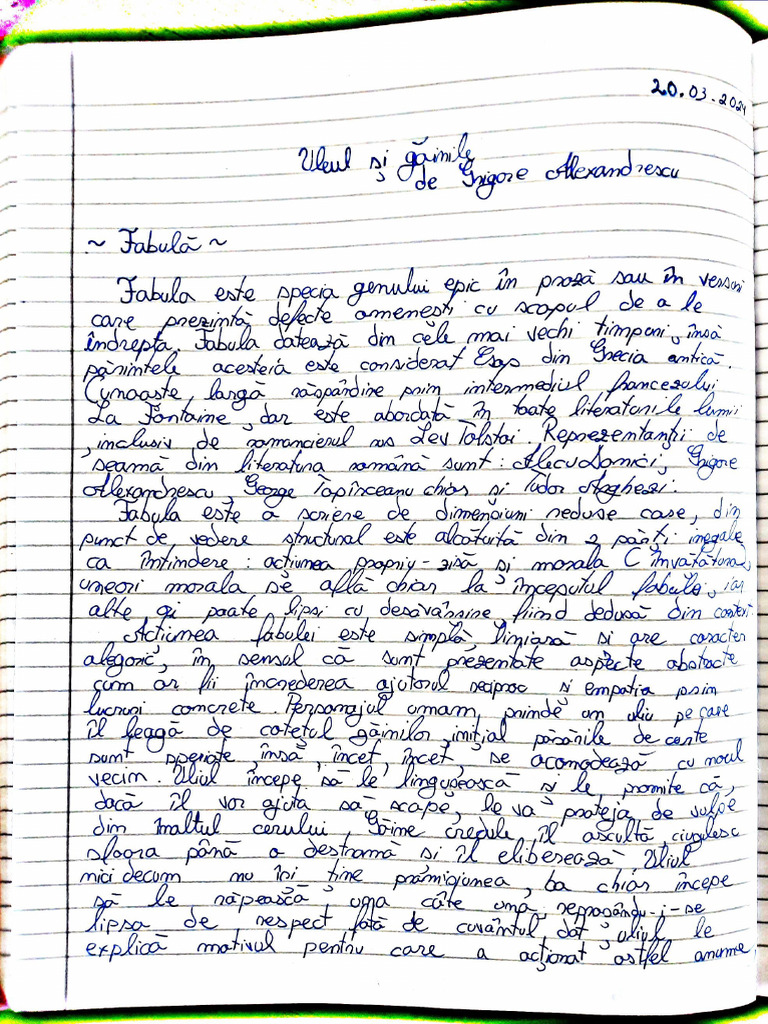 20.03.2024
Uleul și găinile
de Grigore Alexandrescu
~ Fabulă ~
Fabula este specia genului epic în proză sau în versuri
care prezintă defecte omenești cu scopul de a le
îndrepta. Fabula datează din cele mai vechi timpuri, însă
părintele acesteia este considerat Esop din Grecia antică.
Cunoaște largă răspândire prin intermediul francezului
La Fontaine, dar este abordată în toate literaturile lumii
, inclusiv de romancierul rus Lev Tolstoi. Reprezentanții de
seamă din literatura română sunt: Alecu Donici, Grigore
Alexandrescu, George Topîrceanu chiar și Tudor Arghezi.
Fabula este a scriere de dimensiuni reduse care, din
punct de vedere structural este alcătuită din 2 părți inegale
ca întindere: acțiunea propriu-zisă și morala (învățătura),
uneori morala se află chiar la începutul fabulei, iar
alte ori poate lipsi cu desăvârsire fiind dedusă din context
Acțiunea fabulei este simplă, liniară și are caracter
alegoric, în sensul că sunt prezentate aspecte abstracte
cum ar fii încrederea ajutorul reciproc și empatia prin
lucruri concrete. Personajul uman, prinde un uliu pe care
îl leagă de cotețul găinilor, inițial păsările de curte
sunt speriate, însă, încet, încet, se acomodează cu noul
vecim. Uliul începe să le lingușească și le promite că,
dacă îl vor ajuta să scape, le va proteja de vulpe
din înaltul cerului. Găine credule îl ascultă, ciugulesc
sfoara până o destramă și îl eliberează. Uliul
nici decum nu își ține promisiunea, ba chiar începe
să le răpească una câte una, reproșându-i-se
lipsa de respect față de cuvântul dat, uliul le
explică motivul pentru care a acționat astfel anume